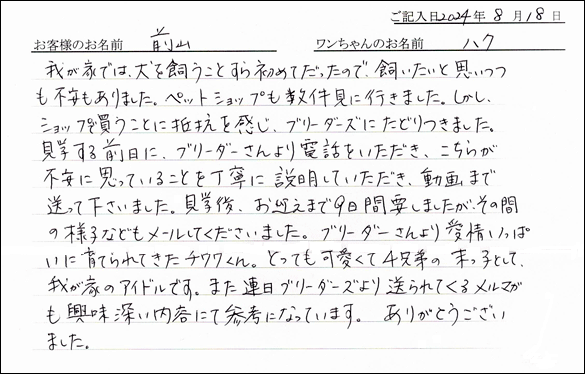 ご記入日 2024年 8月 18日
お客様のお名前 前山 ワンちゃんのお名前 ハク
我が家では、犬を飼うことすら初めてだったので、飼いたいと思いつつ
も不安もありました。ペットショップも数件見に行きました。しかし、
ショップで買うことに抵抗を感じ、ブリーダーズにたどりつきました。
見学する前日に、ブリーダーさんより電話をいただき、こちらが
不安に思っていることを丁寧に説明していただき、動画まで
送って下さいました。見学後、お迎えまで9日間要しましたが、その間
の様子などもメールしてくださいました。ブリーダーさんより愛情いっぱ
いに育てられてきたチワワくん。とっても可愛くて4兄弟の末っ子として、
我が家のアイドルです。また連日ブリーダーズより送られてくるメルマガ
も興味深い内容にて参考になっています。ありがとうござい
ました。